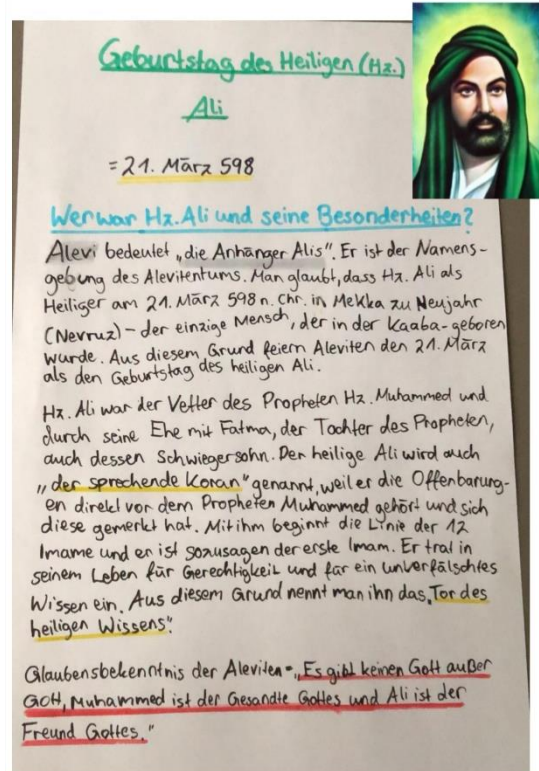 Geburtstag des Heiligen (Hz.)
Ali
= 21. März 598
Wer war Hz. Ali und seine Besonderheiten?
Alevi bedeutet „die Anhänger Alis". Er ist der Namens-
gebung des Alevitentums. Man glaubt, dass Hz. Ali als
Heiliger am 21. März 598 n. Chr. in Mekka zu Neujahr
(Nevruz) – der einzige Mensch, der in der Kaaba-geboren
wurde. Aus diesem Grund feiern Aleviten den 21. März
als den Geburtstag des heiligen Ali.
Hz. Ali war der Vetter des Propheten Hz. Muhammed und
durch seine Ehe mit Fatma, der Tochter des Propheten,
auch dessen Schwiegersohn. Der heilige Ali wird auch
„der sprechende Koran" genannt, weil er die Offenbarung-
en direkt vor dem Propheten Muhammed gehört und sich
diese gemerkt hat. Mit ihm beginnt die Linie der 12
Imame und er ist sozusagen der erste Imam. Er trat in
seinem Leben für Gerechtigkeit und für ein unverfälschtes
Wissen ein. Aus diesem Grund nennt man ihn das „Tor des
heiligen Wissens".
Glaubensbekenntnis der Aleviten = „Es gibt keinen Gott außer
GOtt, Muhammed ist der Gesandte Gottes und Ali ist der
Freund Gottes."